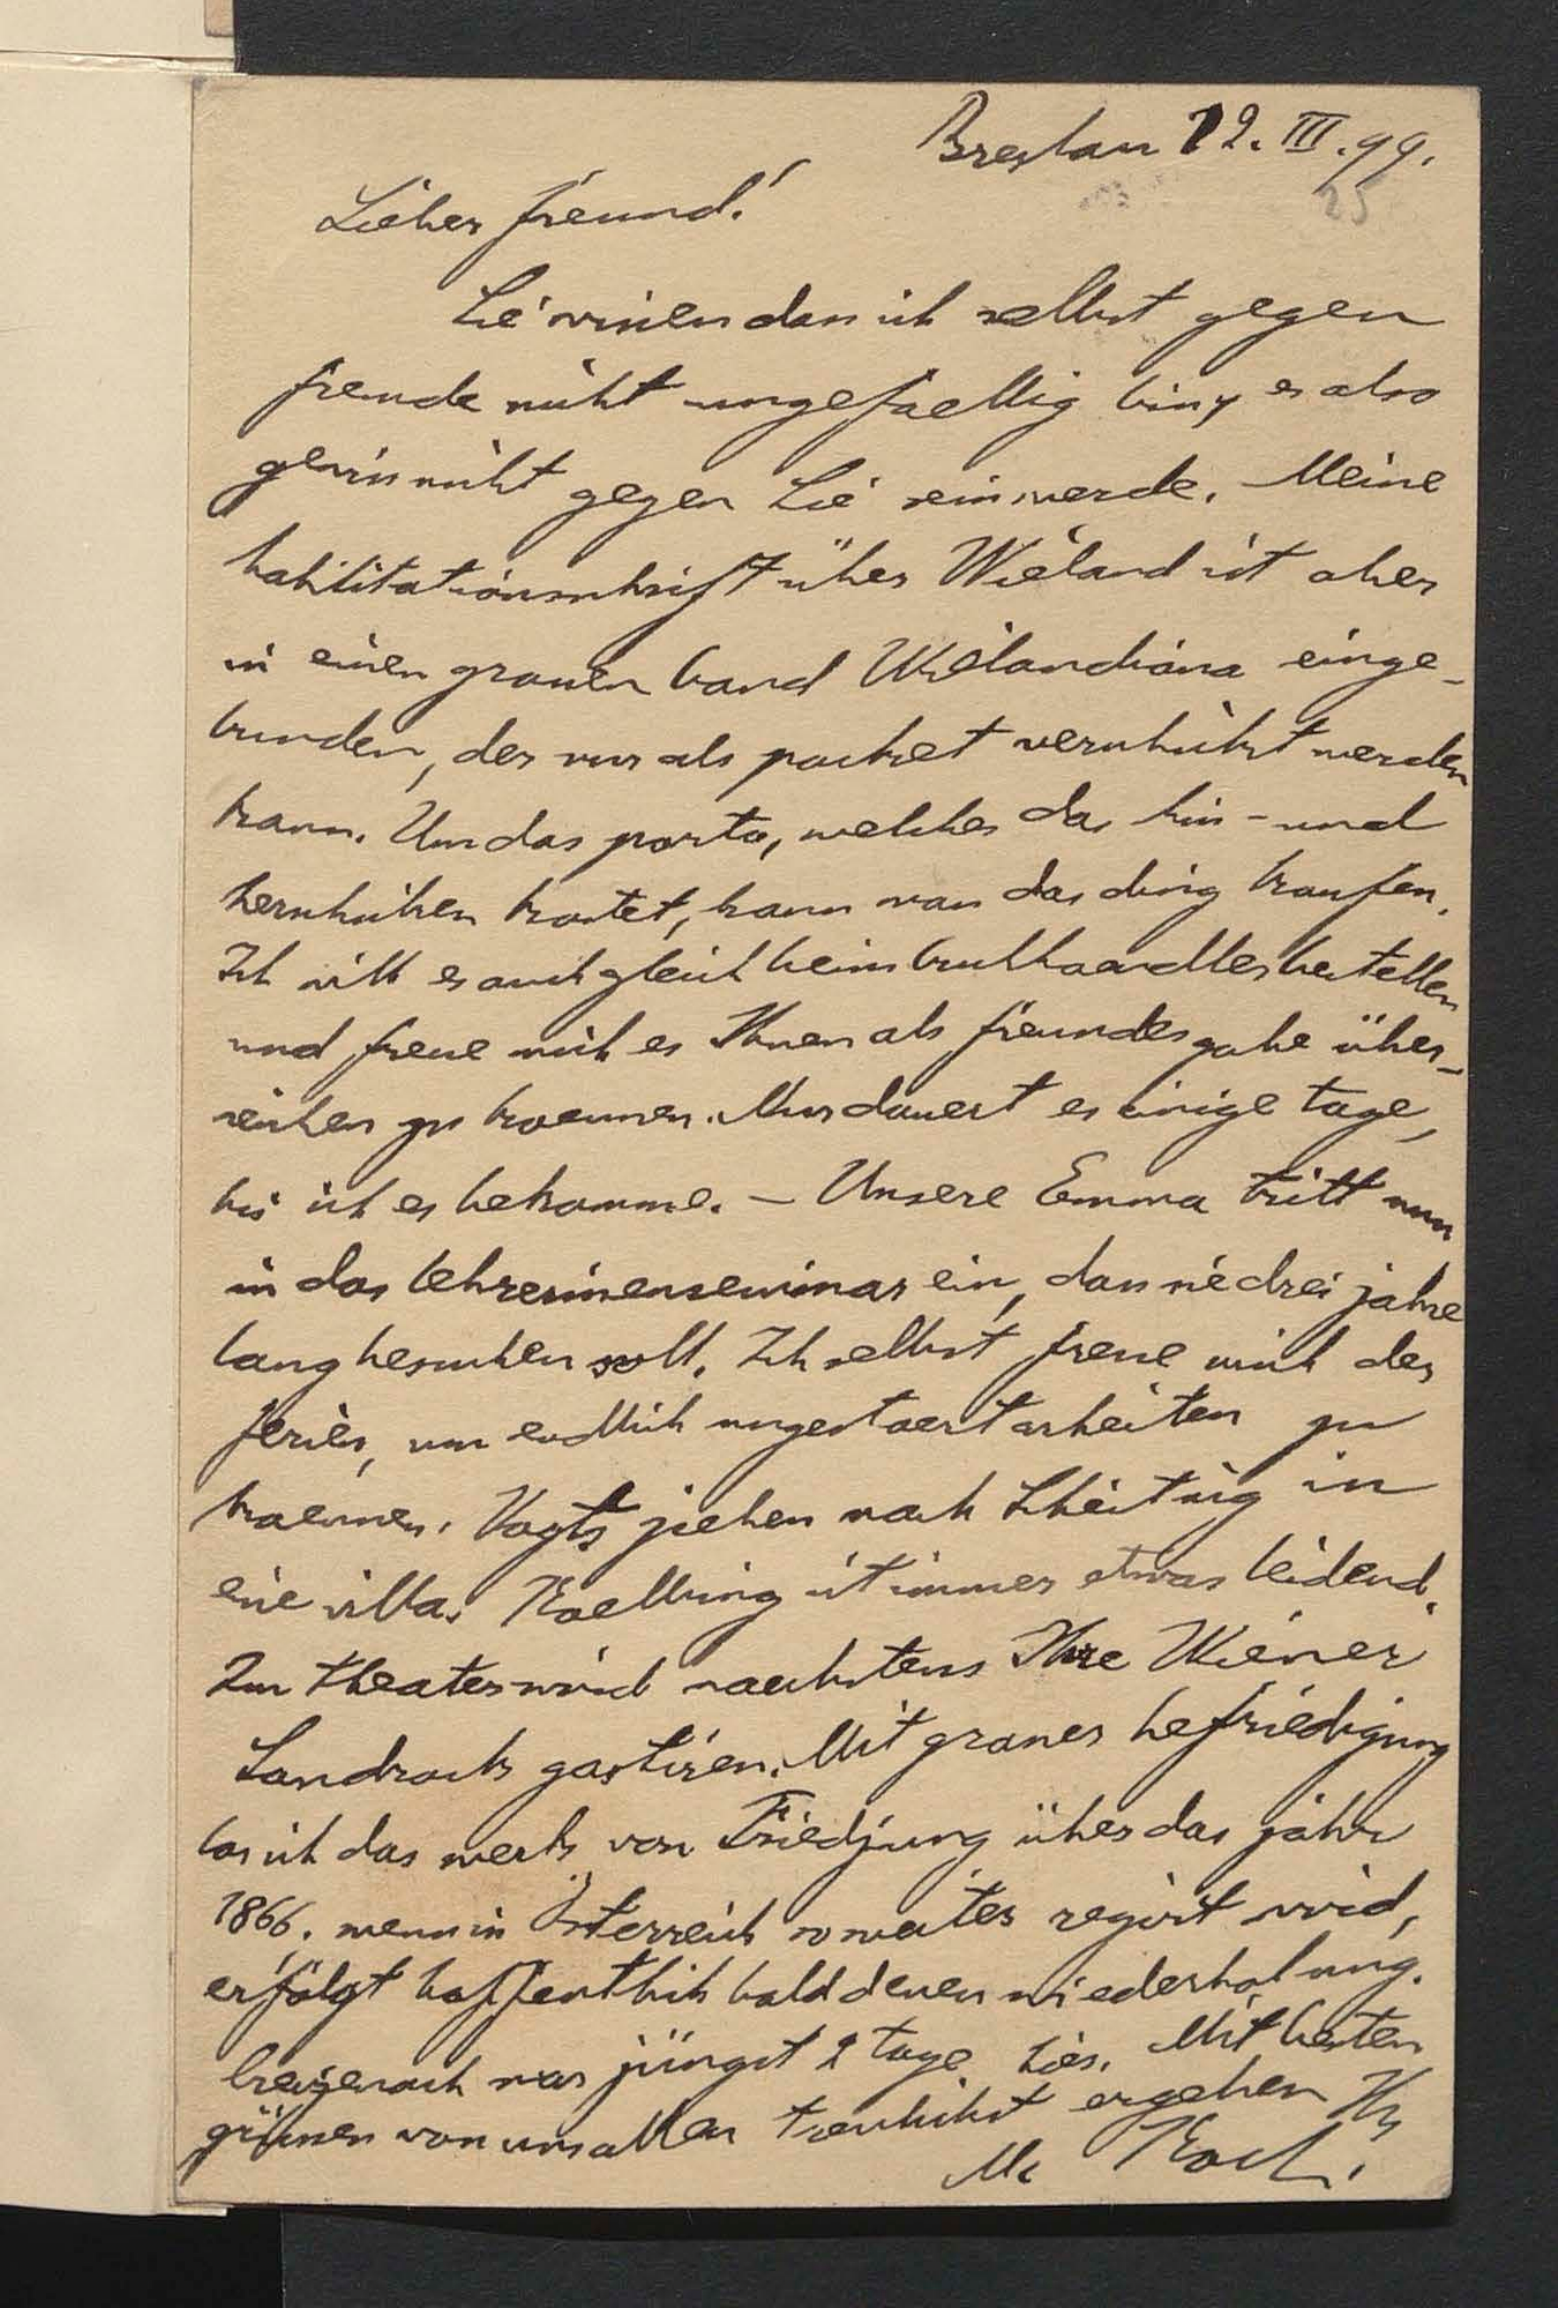 Breslau 12. III. 99.
25
Lieber freund!
Sie wissen dass ich selbst gegen
fremde nicht ungefaellig bin, es also
gewiss nicht gegen Sie sein werde. Meine
habilitationsschrift über Wieland ist aber
in einen grossen band Wielandiana einge-
bunden, der nur als packet verschickt werden
kann. Um das porto, welches das hin- und
herschicken kostet, kann man das ding kaufen.
Ich will es auch gleich beim buchhaendler bestellen
und freue mich es Ihnen als freundesgabe über-
reichen zu koennen. Nur dauert es einige tage,
bis ich es bekomme. – Unsere Emma tritt nun
in das lehrerinenseminar ein, dass sie drei jahre
lang besuchen soll. Ich selbst freue mich der
ferien, um endlich ungestoert arbeiten zu
koennen. Vogts ziehen nach Scheitnig in
eine villa. Koelbing ist immer etwas leidend.
Im theater wird naechstens Ihre Wiener
Sandrock gastiren. Mit grosser befriedigung
las ich das werk von Friedjung über das jahr
1866. wenn in Österreich so weiter regirt wird,
erfolgt hoffentlich bald dessen wiederholung.
Creizenach war jüngst 2 tage hier. Mit besten
grüssen von uns allen treulichst ergeben Ihr
M. Koch.